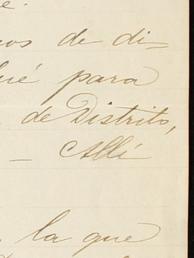 e.
nos de di-
ué para
de Distrito,
- Allí
la que